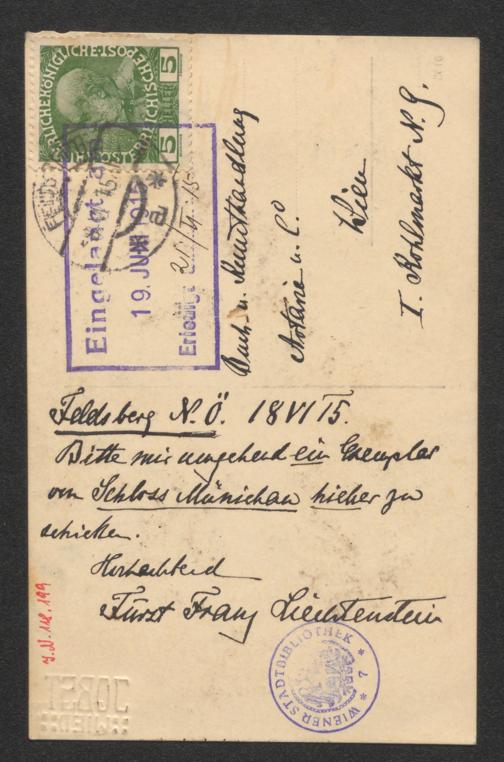 KAISERLICHE KÖNIGLICHE ÖSTERREICHISCHE POST
5 HELLER 5
FELDSBERG
Eingelangt am
19. JUNI 1915
Erledigt am 21/VI 15
Buch- u. Kunsthandlung
Artaria u. Co
Wien
I. Kohlmarkt N. 9.
Feldsberg N.Ö. 18 VI 15.
Bitte mir umgehend ein Exemplar
von Schloss Münichau hieher zu
schicken.
Hochachtend
Fürst Franz Liechtenstein
I.N. 118.199
WIENER STADTBIBLIOTHEK * 7 *
JOBST
WIEN